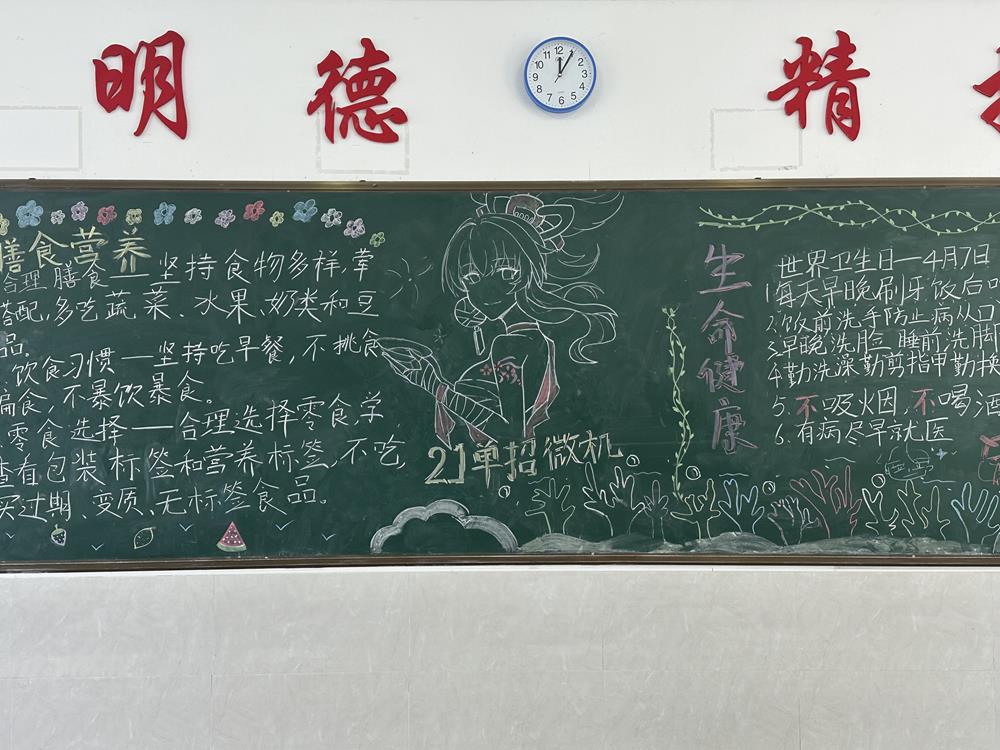 明德 精
12 1 2 3 4 5 6 7 8 9 10 11
膳食营养
合理膳食——坚持食物多样,荤
搭配,多吃蔬菜、水果、奶类和豆
品。
饮食习惯——坚持吃早餐,不挑食
偏食,不暴饮暴食。
零食选择——合理选择零食,学
查看包装标签和营养标签,不吃,
买过期、变质、无标签食品。
21单招微机
生命健康
世界卫生日—4月7日
1.每天早晚刷牙饭后
2.饭前洗手防止病从口
3.早晚洗脸 睡前洗脚
4.勤洗澡勤剪指甲勤换
5.不吸烟,不喝酒
6.有病尽早就医